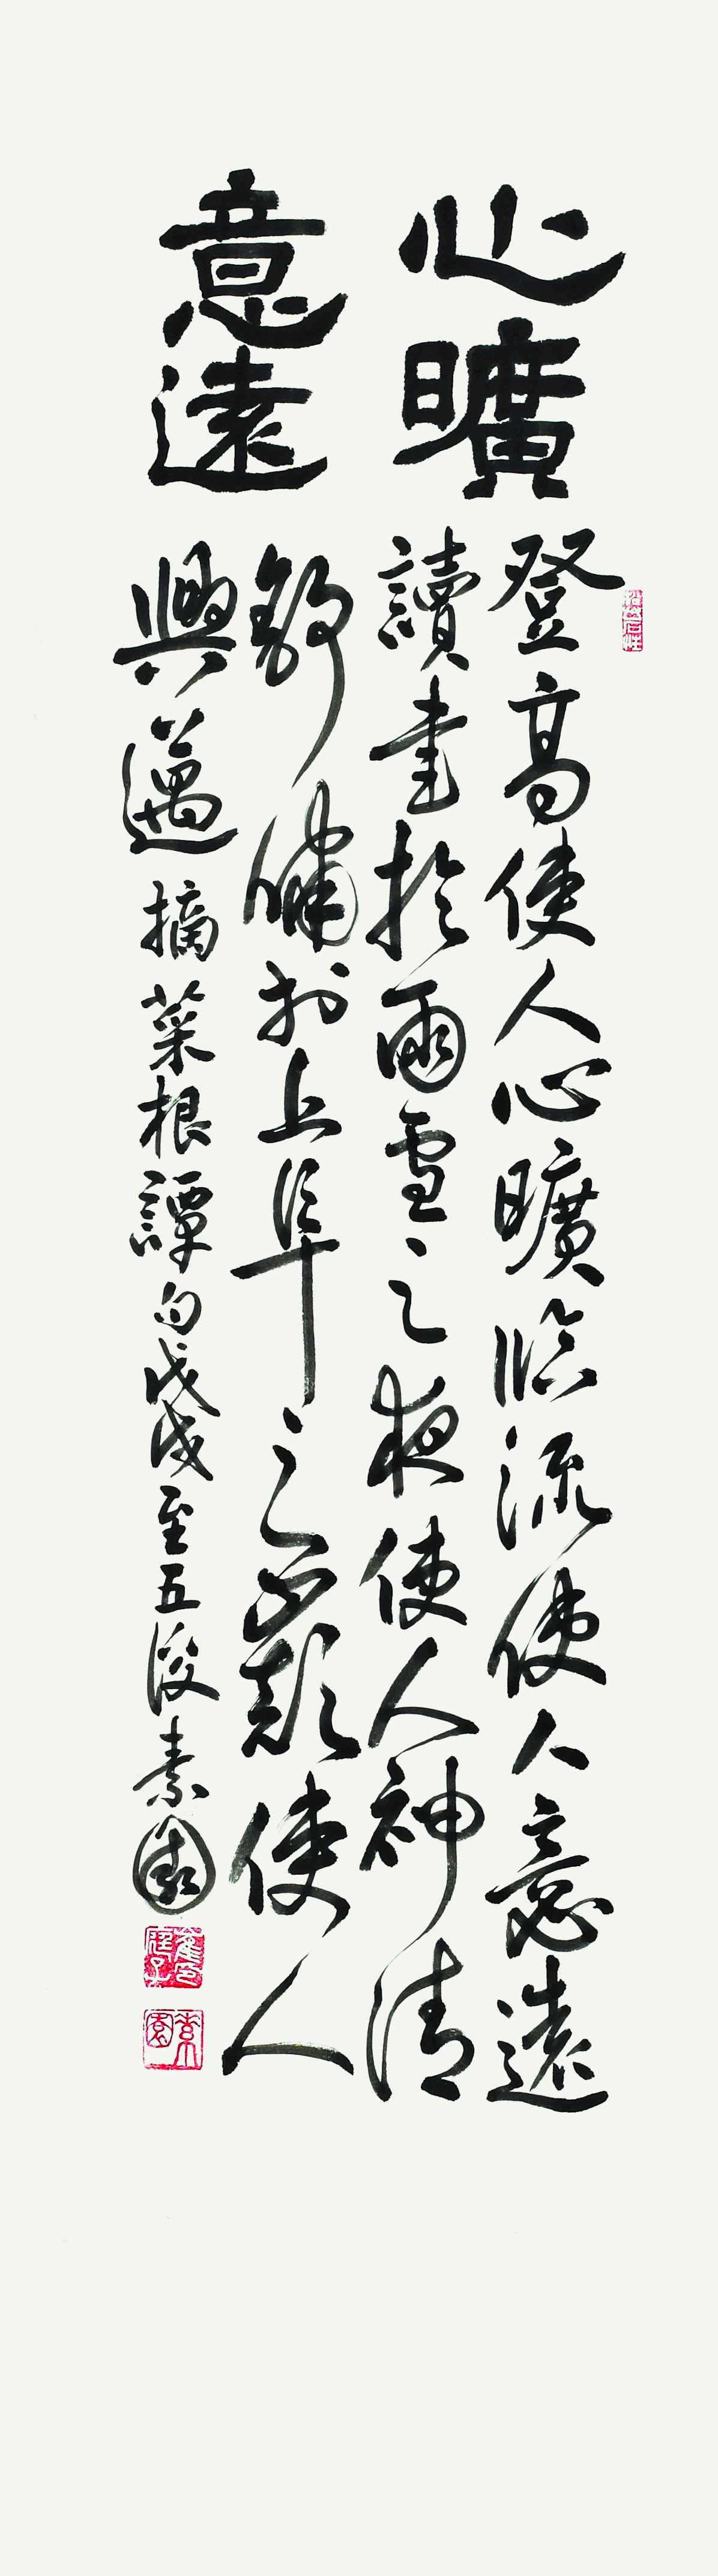 心曠
意遠
登高使人心曠臨流使人意遠
讀書於雨雪之夜使人神清
舒嘯於丘阜之巔使人
興邁 摘菜根譚句戊戌重五後素園
素園